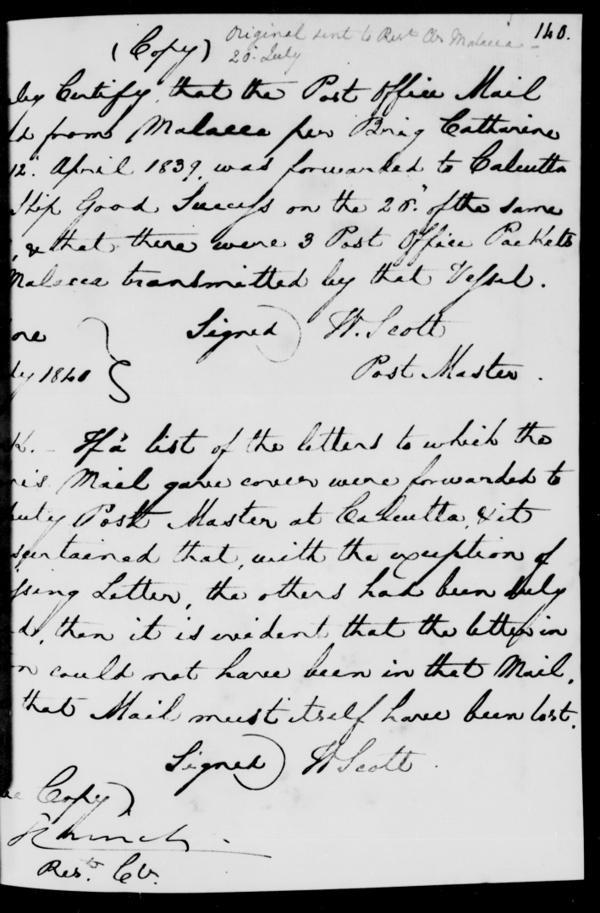 140.
(Copy) Original sent to Rest Clr Malacca
20 July
eby Certify, that the Post Office Mail
d from Malacca per Brig Catharine
12. April 1839, was forwarded to Calcutta
Ship Good Success on the 28." of the same
, & that there were 3 Post Office Packets
Malacca transmitted by that Vessel.
ore Signed) W. Scott
ly 1840 Post Master.
K. - If a list of the letters to which the
ris Mail gave cover were forwarded to
puty Post Master at Calcutta, & it
scertained that, with the exception of
ssing Letter, the others had been duly
d, then it is evident that the letter in
n could not have been in that Mail,
that Mail must itself have been lost.
Signed) W Scott.
ue Copy)
Rest. Clr.